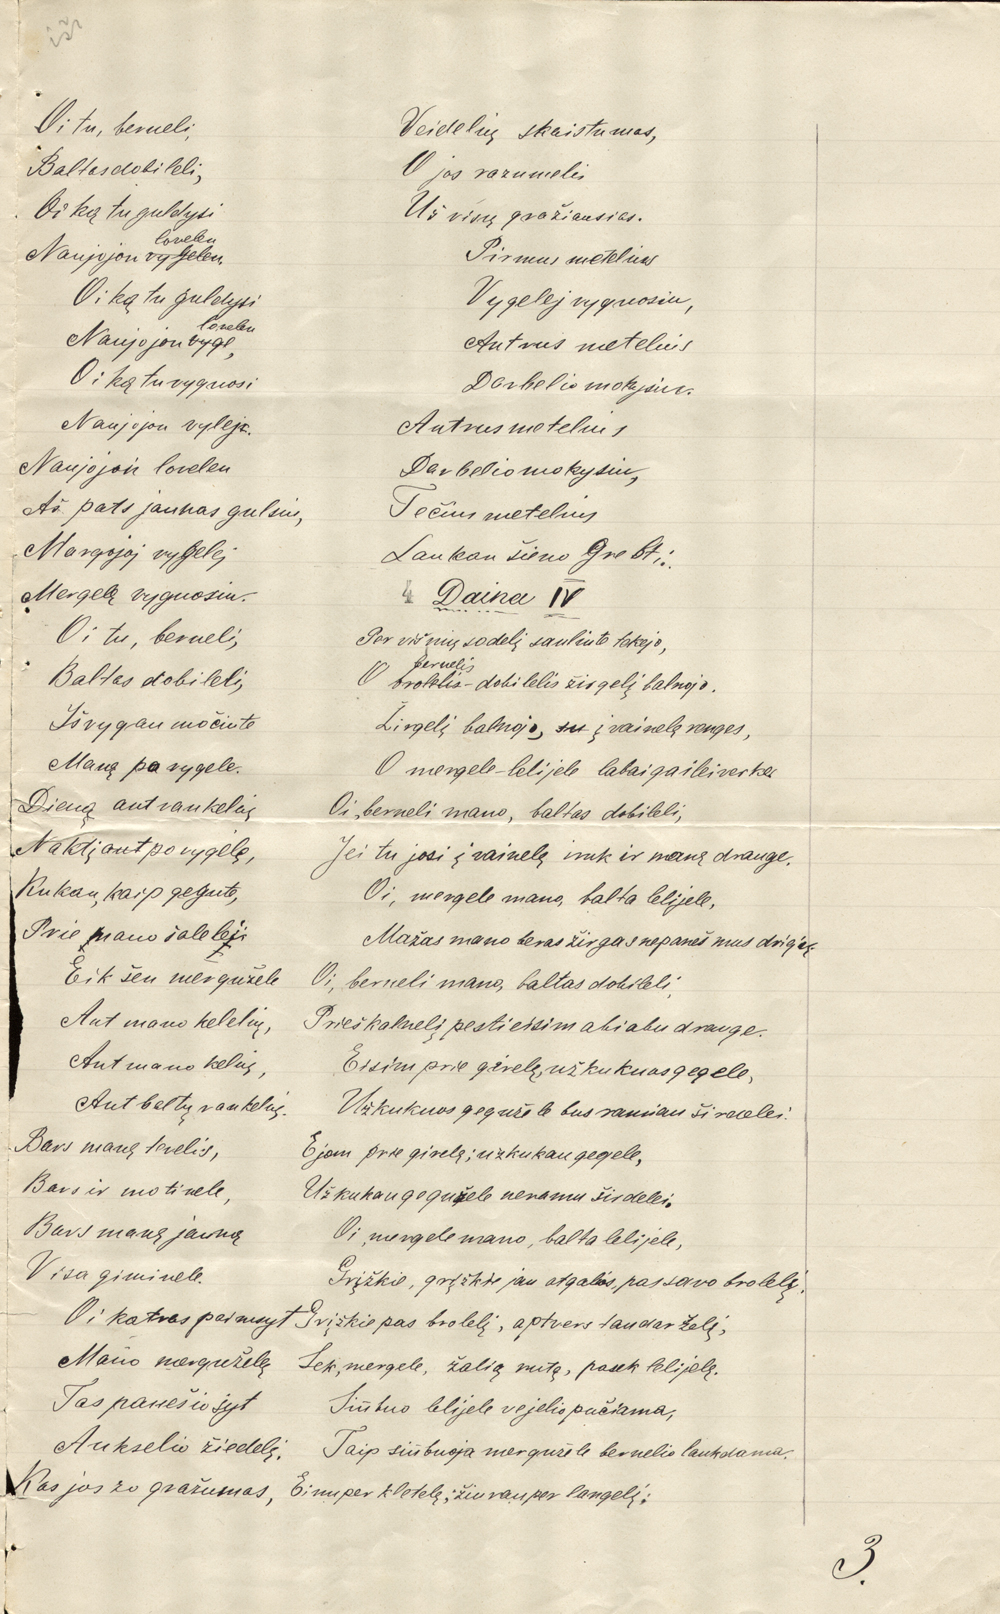 iš
Oi tu, berneli,
Baltas dobileli,
Oi ką tu guldysi
lovelen
Naujojon vygelen,
Oi ką tu guldysi
lovelen
Naujojon vyge,
Oi ką tu vyguosi
Naujojon vylėje.
Naujojon lovelen
Aš pats jaunas gulsiu,
Margojoj vygelėj
Mergelę vyguosiu.
Oi tu, berneli,
Baltas dobileli,
Išvygau močiute
Maną po vygele.
Dieną ant rankelių
Naktį ant po vygėlę,
Kukau, kaip gegute,
Prie mano šalelėj:
Eik šen mergužele
Ant mano kelelių,
Ant mano kelių,
Ant baltų rankelių.
Bars maną tevelis,
Bars ir motinele,
Bars maną jauną
Visa giminele.
Oi katras paimsyt
Mano mergužėlę
Tas panešiosyt
Aukselio žiedelį,
Kas jos žo gražumas,
Veidelių skaistumas,
O jos razumelis
Už visų gražiausias.
Pirmus metelius
Vygelėj vyguosiu,
Antrus metelius
Darbelio mokysiu.
Antrus metelius
Darbelio mokysiu,
Tečius metelius
Laukan šieno Grebti:
4 Daina IV
Per višnių sodelį sauliute tekejo,
bernelis
O brolelis-dobilelis žirgelį balnojo.
Žirgelį balnojo, su į vainelę renges,
O mergele-lelijele labai gailei verke
Oi, berneli mano, baltas dobileli,
Jei tu josi į vainelę imk ir maną drauge.
Oi, mergele mano, balta lelijele,
Mažas mano beras žirgas nepaneš mus dviejų
Oi, berneli mano, baltas dobileli,
Prieš kalnelį pesti eisim abiabu drauge.
Eisim prie girelę, užkukuos gegele,
Užkukuos gegužele bus ramiau širdelei.
Ejom prie girelę; užkukau gegele,
Užkukau gegužele neramu širdelei.
Oi, mergele mano, balta lelijele,
Grįžkie, grįžkie jau atgalios, pas savo brolelį.
Grįžkie pas brolelį, aptvers tau darželį,
Sek, mergele, žalią rutą, pasek lelijelę.
Siūbuo lelijele vejelio pučiama,
Taip siūbuoja mergužele bernelio laukdama.
Einu per kletelę; žiurau per langelį:
3.